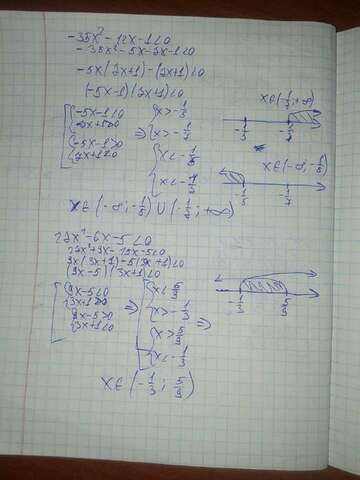 -35x² - 12x - 1 < 0
-35x² - 5x - 7x - 1 < 0
-5x(7x+1) - (7x+1) < 0
(-5x-1)(7x+1) < 0
-5x-1<0
7x+1>0
-5x-1>0
7x+1<0
=>
x > -1/5
x > -1/7
x < -1/5
x < -1/7
x∈(-1/7; +∞)
-1/5
-1/7
x∈(-∞; -1/5)
-1/5
-1/7
x∈(-∞; -1/5)∪(-1/7; +∞)
27x² - 6x - 5 < 0
27x² + 9x - 15x - 5 < 0
9x(3x+1) - 5(3x+1) < 0
(9x-5)(3x+1) < 0
9x-5<0
3x+1>0
9x-5>0
3x+1<0
=>
x < 5/9
x > -1/3
x > 5/9
x < -1/3
=>
-1/3
5/9
x∈(-1/3; 5/9)